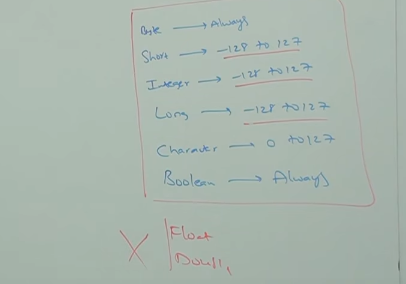 Byte → Always
Short → -128 to 127
Integer → -128 to 127
Long → -128 to 127
Character → 0 to 127
Boolean → Always
X | Float
Doubl